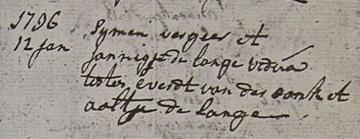 1796
12 jan Symen vergeer et
jannigje de lange vidua
testes everdt van der et
aaltje de lange